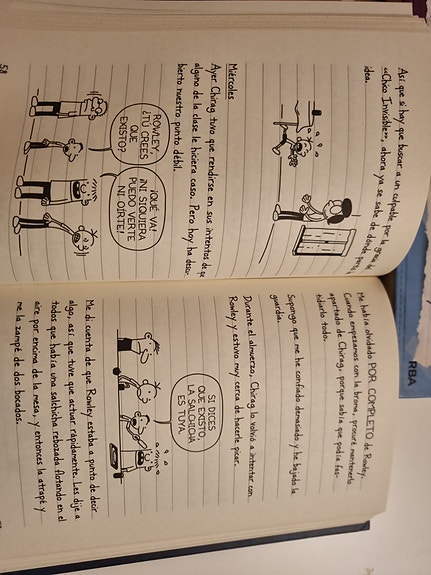 Así que si hay que buscar a un culpable por la
«Chico Invisible», ahora ya se sabe de dónde
idea.
Miércoles
Ayer Chirag tuvo que rendirse en sus intentos de que
alguno de la clase le hiciera caso. Pero hoy ha descu-
bierto nuestro punto débil.
ROWLEY,
¿TÚ CREES
QUE
EXISTO?
¡QUÉ VA!
¡NI SIQUIERA
PUEDO VERTE
NI OÍRTE!
58
Me había olvidado POR COMPLETO de Rowley.
Cuando empezamos con la broma, procuré mantenerlo
apartado de Chirag, porque sabía que podía fas-
tidiarlo todo.
Supongo que me he confiado demasiado y he bajado la
guardia.
Durante el almuerzo, Chirag lo volvió a intentar con
Rowley y estuvo muy cerca de hacerle picar.
SI DICES
QUE EXISTO,
LA SALCHICHA
ES TUYA.
Me di cuenta de que Rowley estaba a punto de decir
algo, así que tuve que actuar rápidamente. Les dije a
todos que había una salchicha rebozada flotando en el
aire por encima de la mesa, y entonces la atrapé y
me la zampé de dos bocados.
RBA